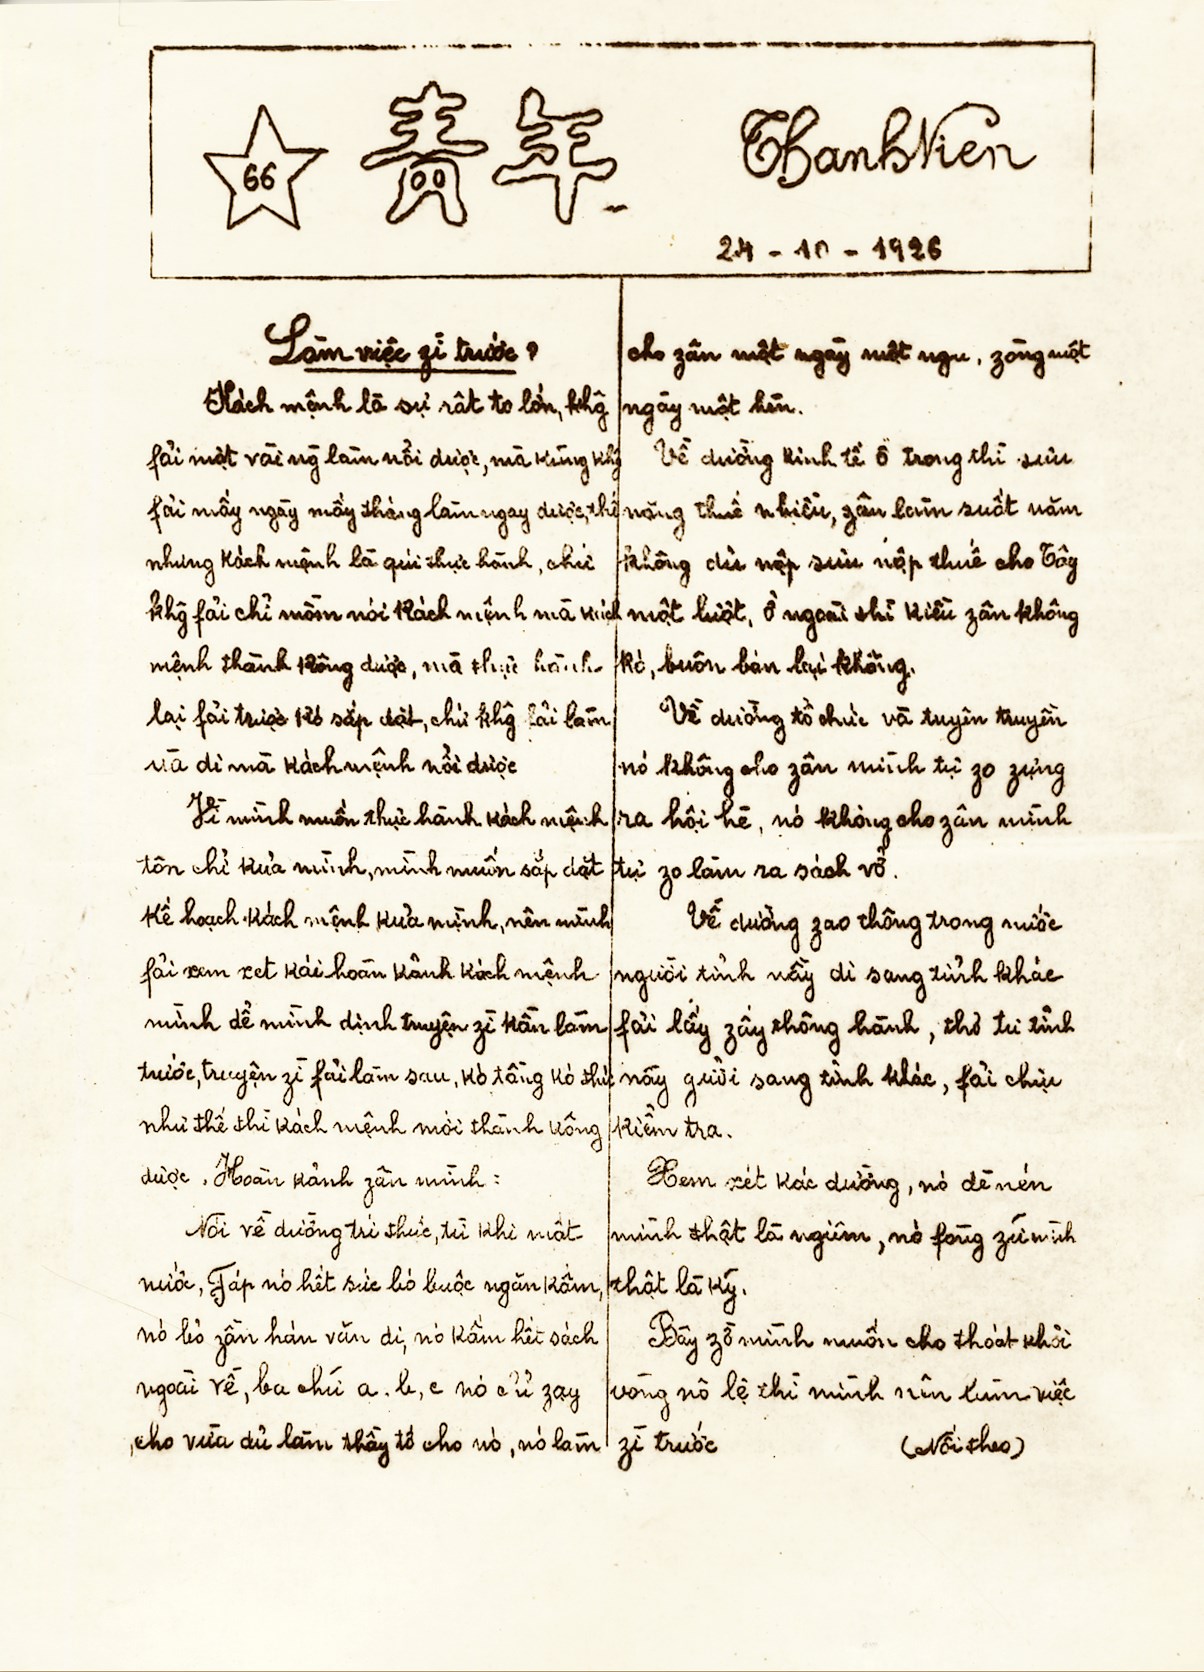 66
青年
Thanh Nien
24 - 10 - 1926
Làm việc zì trước?
Kách mệnh là sự rất to lớn, khg
fải một vài ng làm nổi dược, mà kũng khg
fải mấy ngày mấy tháng làm ngay dược, thế
nhưng kách mệnh là qúi thực hành, chứ
khg fải chỉ mồm nói kách mệnh mà kách
mệnh thành kông dược, mà thực hành
lại fải trược kó sắp dặt, chứ khg fải làm
và di mà kách mệnh nổi dược
Vì mình muốn thực hành kách mệnh
tôn chỉ kủa mình, mình muốn sắp dặt
kế hoạch kách mệnh kủa mình, nên mình
fải xem xet kái hoàn kảnh kách mệnh
mình dể mình dịnh truyện zì kần làm
trước, truyện zì fải làm sau, kó tầng kó thứ
như thế thì kách mệnh mới thành kông
dược. Hoàn kảnh zân mình:
Nói về dường trí thức, từ khi mất
nước, Fáp nó hết sức bó buộc ngăn kấm,
nó bỏ zần hán văn di, nó kấm hết sách
ngoài về, ba chữ a. b, c nó cứ zạy
cho vừa dủ làm thầy tớ cho nó, nó làm
cho zân một ngày một ngu, zòng một
ngày một hèn.
Về dường kinh tế ở trong thì sưu
nặng thuế nhiều, zân làm suốt năm
không dủ nộp sưu nộp thuế cho Tây
một lượt, ở ngoài thì kiều zân không
kó, buôn bán lại không.
Về dường tổ chức và tuyên truyền
nó không cho zân mình tự zo zựng
ra hội hè, nó không cho zân mình
tự zo làm ra sách vở.
Về dường zao thông trong nước
người tỉnh nầy di sang tỉnh khác
fải lấy zấy thông hành, thơ từ tỉnh
nầy gưởi sang tỉnh khác, fải chịu
kiểm tra.
Xem xét kác dường, nó dè nén
mình thật là ngiêm, nó fòng zữ mình
thật là kỹ.
Bây zờ mình muốn cho thoát khỏi
vòng nô lệ thì mình nên làm việc
zì trước
(Nối theo)